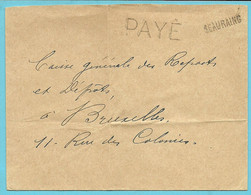 PAYÉ
BEAURAING
Caisse générale des Reports
et Dépôts,
à Bruxelles.
11. Rue des Colonies.